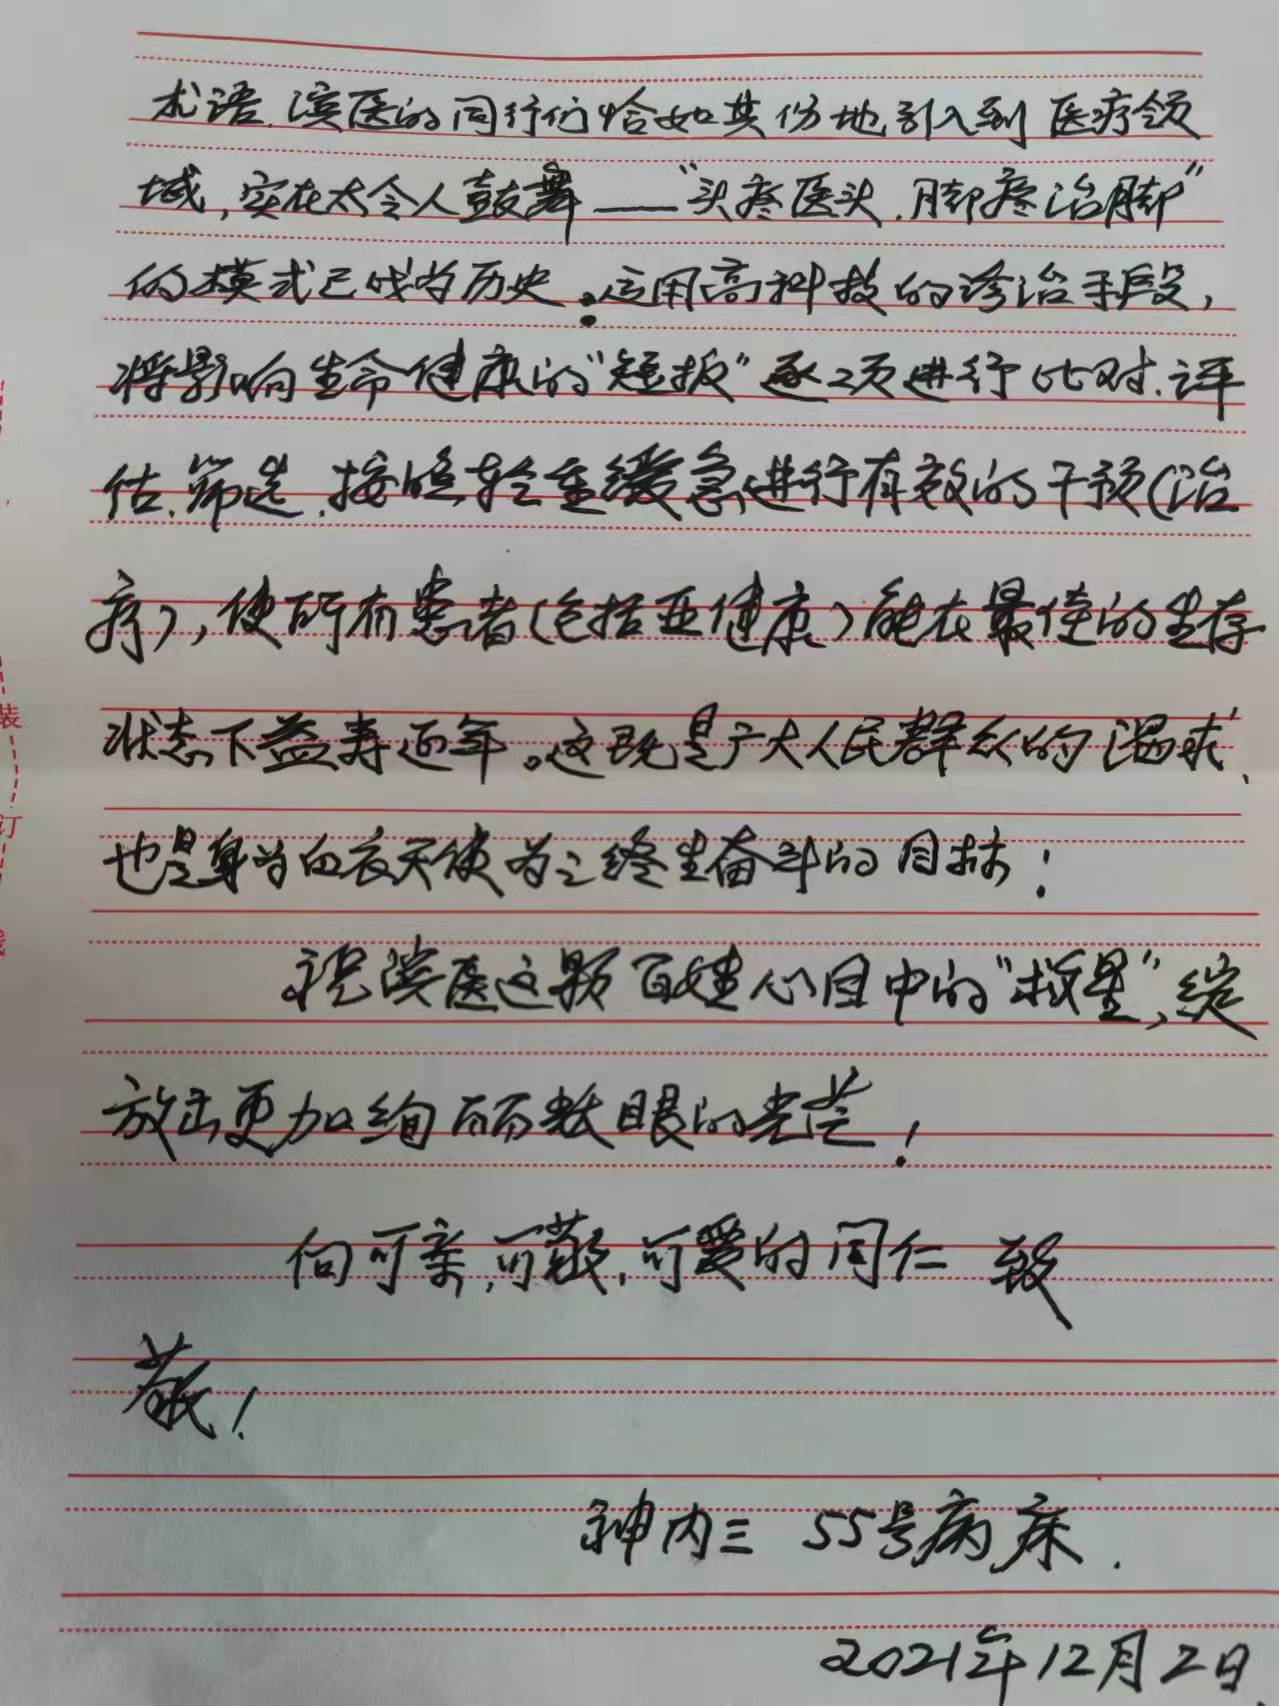 术语,滨医的同行们恰如其份地引入到医疗领
域,实在太令人鼓舞——“头疼医头,脚疼治脚”
的模式已成为历史。运用高科技的诊治手段,
将影响生命健康的“短板”逐项进行比对,评
估,筛选,按照轻重缓急进行有效的干预(治
疗),使所有患者(包括亚健康)能在最佳的生存
状态下益寿延年。这既是广大人民群众的渴求,
也是身为白衣天使为之终生奋斗的目标!
祝滨医这颗百姓心目中的“救星”,绽
放出更加绚丽耀眼的光芒!
向可亲,可敬,可爱的同仁 致
敬!
神内三 55号病床.
2021年12月2日.
装
订
线